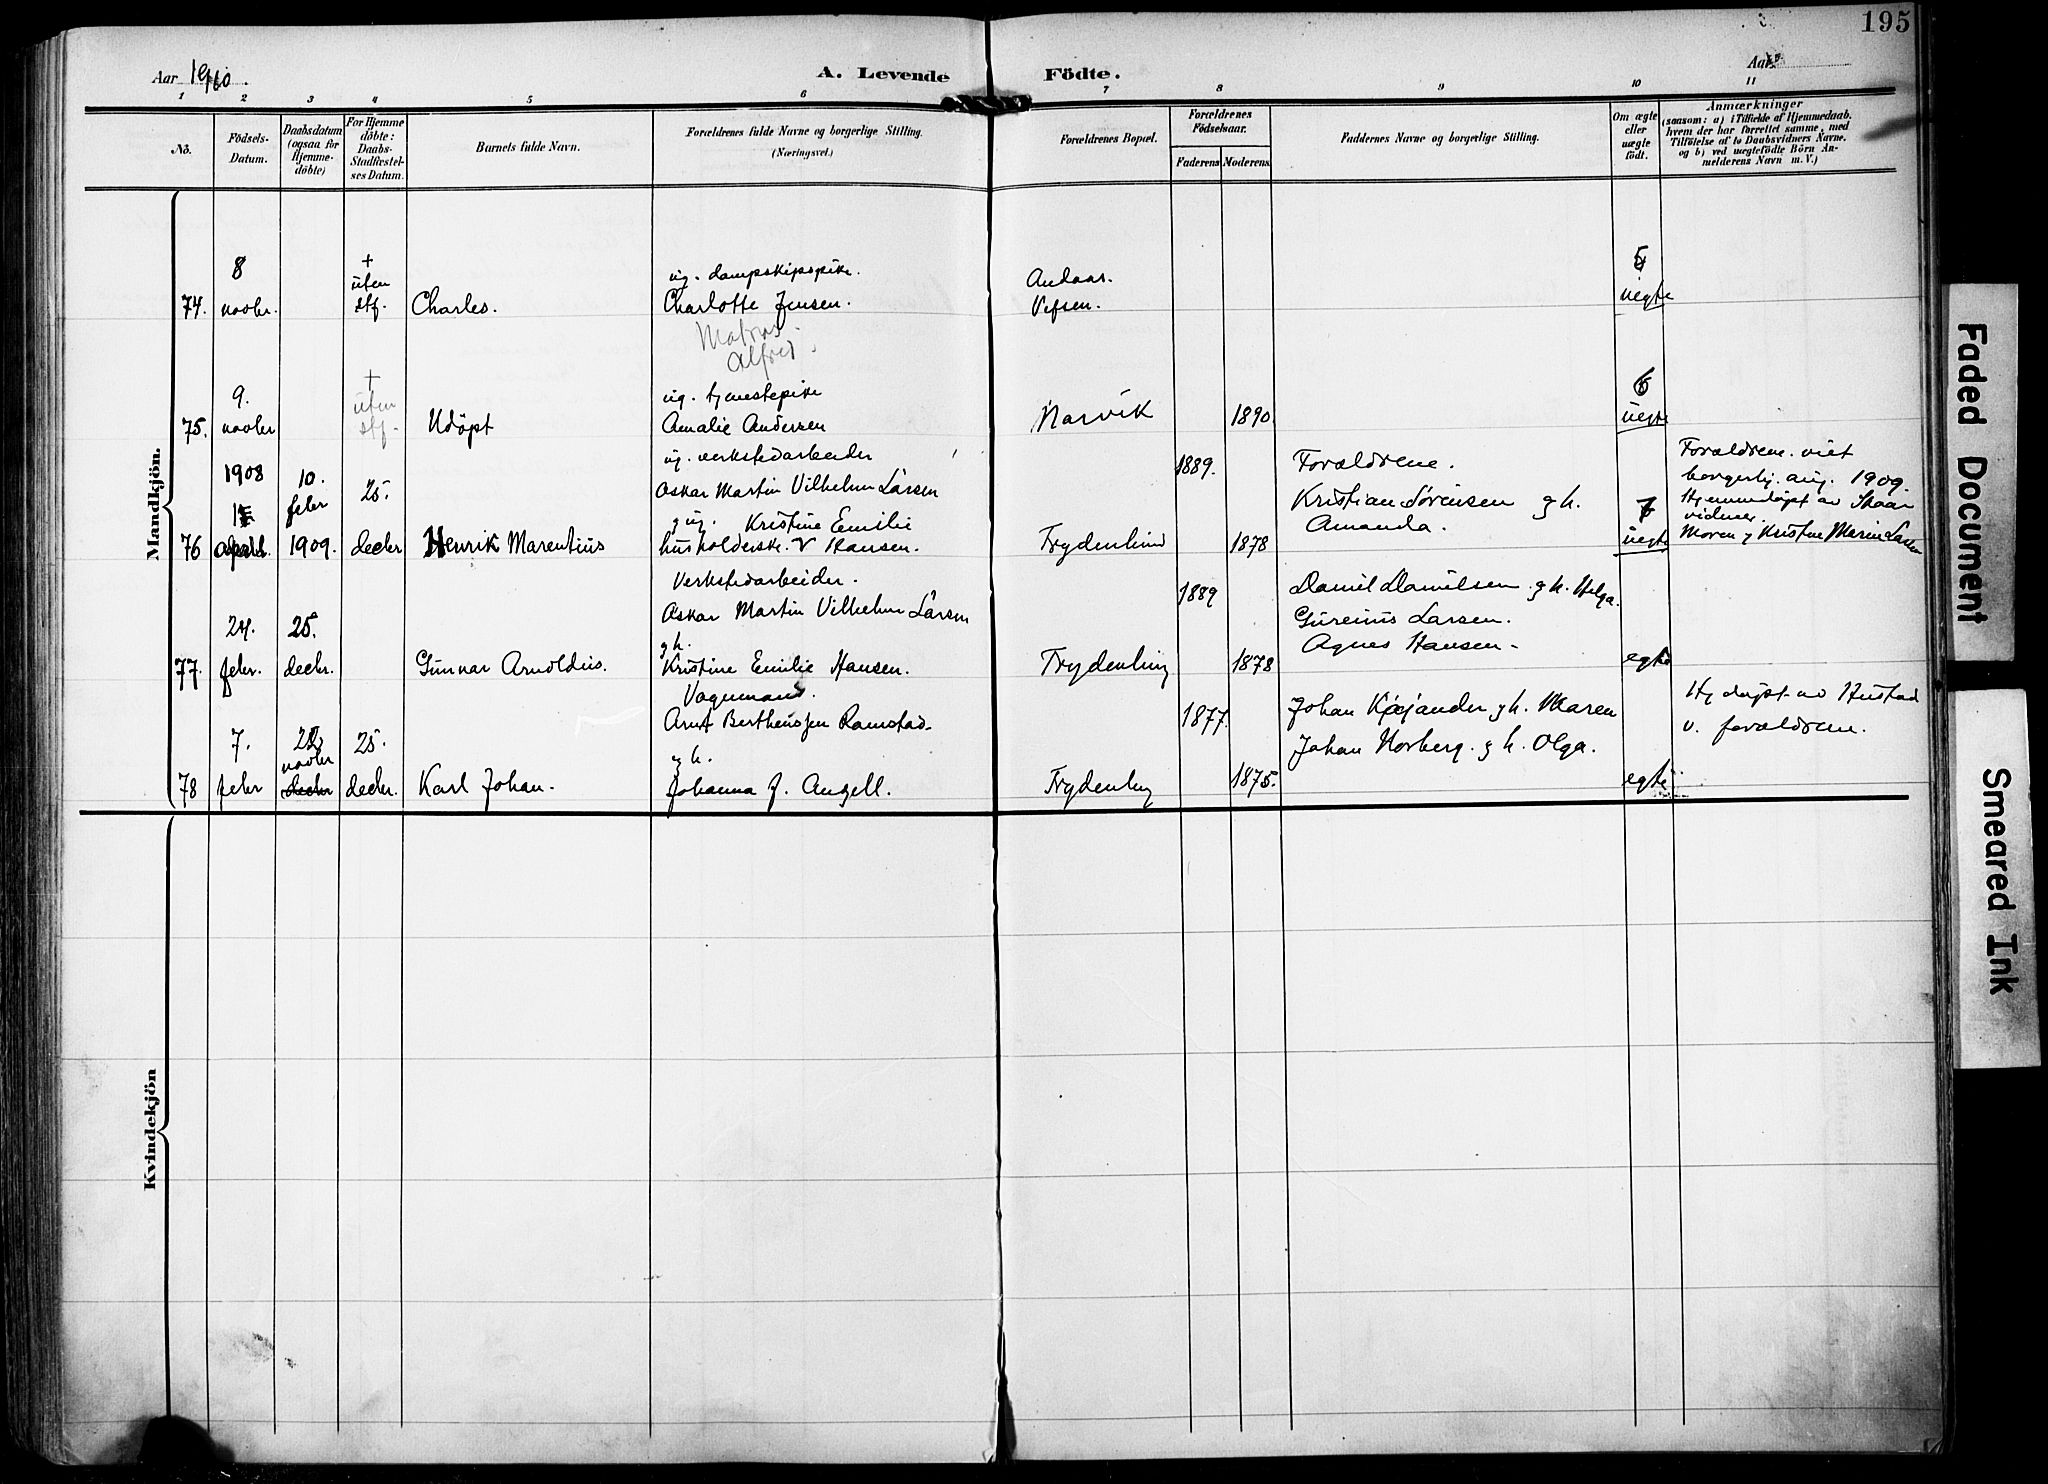 195
Aar 1910.
A. Levende Födte.
Aar
1 2 3 4 5 6 7 8 9 10 11
No.
Födsels-
Datum.
Daabsdatum
(ogsaa for
Hjemme-
döbte)
For Hjemme
döbte:
Daabs-
Stadfæstel-
ses Datum.
Barnets fulde Navn.
Forældrenes fulde Navne og borgerlige Stilling.
(Næringsvei.)
Forældrenes Bopæl.
Forældrenes
Födselsaar.
Faderens
Moderens
Faddernes Navne og borgerlige Stilling.
Om ægte
eller
uægte
födt.
Anmærkninger
(saasom: a) i Tilfælde af Hjemmedaab.
hvem der har forrettet samme, med
Tilföielse af to Daabsvidners Navne.
og b) ved uægtefödte Börn An-
melderens Navn m. V.)
Mandkjön.
74.
8
novbr.
+
uten
stf.
Charles.
ug. dampskipspike.
Charlotte Jensen.
Alfred
Andaas.
Vefsen.
5
uegte
75.
9.
novbr
+
uten
stf.
Udöpt
ug. tjenestepike
Amalie Andersen
Narvik
1890
6
uegte
76
1908
april
10.
febr
1909.
25.
decbr
Henrik Marentius
ug. verkstedarbeider
Oskar Martin Vilhelm Larsen
g ug. Kristine Emilie
husholderske. V Hansen.
Frydenlund
1889.
1878
Forældrene.
Kristian Sørensen g h.
Amanda.
7
uegte
Forældrene viet
borgerlig. aug. 1909.
Hjemmedöpt av Skaar
vidner
Moren g Kristine Marie Larsen
77.
24.
febr.
25.
decbr.
Gunnar Arnoldus.
Verkstedarbeider.
Oskar Martin Vilhelm Larsen
g h.
Kristine Emilie Hansen.
Frydenlund
1889
1878
Daniel Danielsen g h. Helga.
Larsen.
Agnes Hansen
egte
78
7.
febr
22
novbr
decbr
25.
decbr.
Karl Johan.
Vognmand.
Arnt Bertheussen Ramstad
g h.
Johanna J. Angell.
Frydenlund
1877.
1875.
Johan g h. Maren
Johan Norberg. g h. Olga.
egte
Hj döpt av Hustad
v. forældrene.
Kvindekjön
Faded Document
Smeared Ink